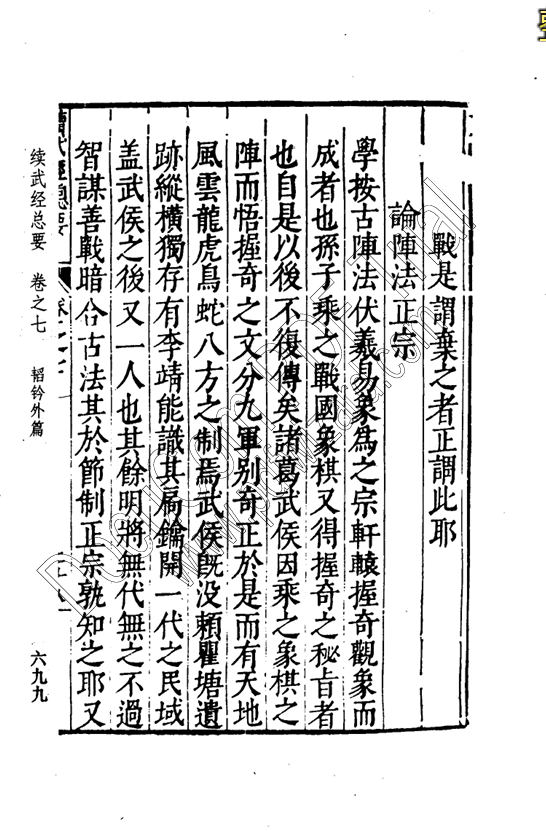 戰是謂棄之者正謂此耶
論陣法正宗
學按古陣法伏羲易象為之宗軒轅握奇觀象而
成者也孫子乘之戰國象棋又得握奇之秘旨者
也自是以後不復傳矣諸葛武侯因乘之象棋之
陣而悟握奇之文分九軍别奇正於是而有天地
風雲龍虎鳥蛇八方之制焉武侯旣没賴瞿塘遺
跡縱橫獨存有李靖能識其扃鑰開一代之民域
盖武侯之後又一人也其餘明將無代無之不過
智謀善戰暗合古法其於節制正宗孰知之耶又
續武經總要
卷之七
续武经总要 卷之七 韬钤外篇
六九九